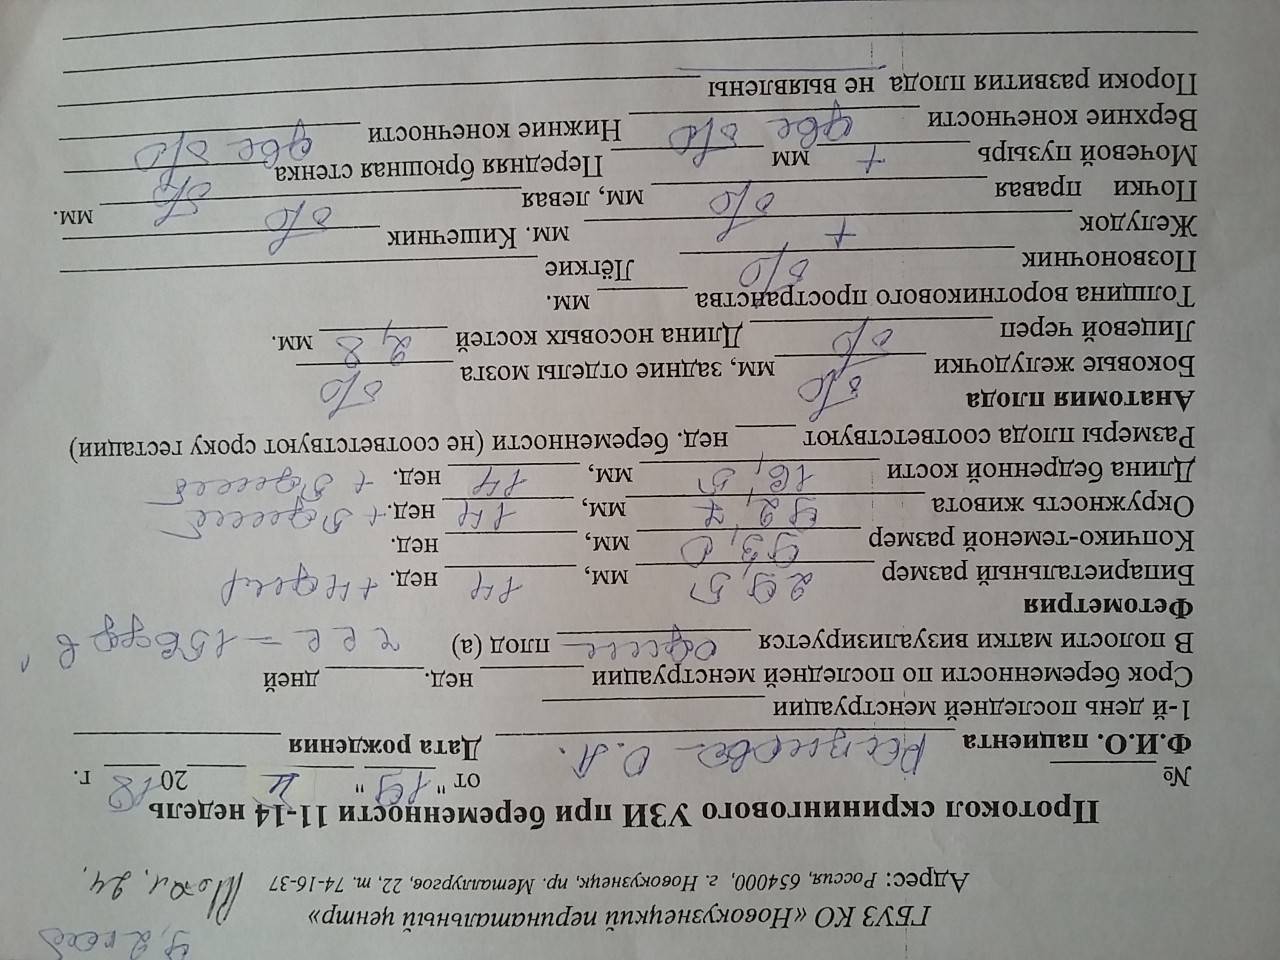 ГБУЗ КО «Новокузнецкий перинатальный центр»
Адрес: Россия, 654000, г. Новокузнецк, пр. Металлургов, 22, т. 74-16-37
Протокол скринингового УЗИ при беременности 11-14 недель
№ от "19" 2018 г.
Ф.И.О. пациента О.А. Дата рождения
1-й день последней менструации
Срок беременности по последней менструации нед. дней
В полости матки визуализируется один плод (а)
Фетометрия
Бипариетальный размер 29,5 мм, 14 нед. +
Копчико-теменой размер 93,0 мм, нед.
Окружность живота 92,7 мм, 14 нед. + 5 дней
Длина бедренной кости 16,5 мм, 14 нед. + 5 дней
Размеры плода соответствуют нед. беременности (не соответствуют сроку гестации)
Анатомия плода
Боковые желудочки б/о мм, задние отделы мозга б/о
Лицевой череп б/о Длина носовых костей 2,8 мм.
Толщина воротникового пространства мм.
Позвоночник б/о Лёгкие
Желудок + мм. Кишечник б/о
Почки правая б/о мм, левая б/о мм.
Мочевой пузырь + мм Передняя брюшная стенка б/о
Верхние конечности две б/о Нижние конечности две б/о
Пороки развития плода не выявлены